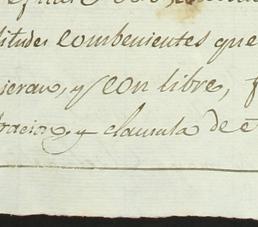 titudes combenientes que
sieran, y con libre, f
tracion, y clausula de e